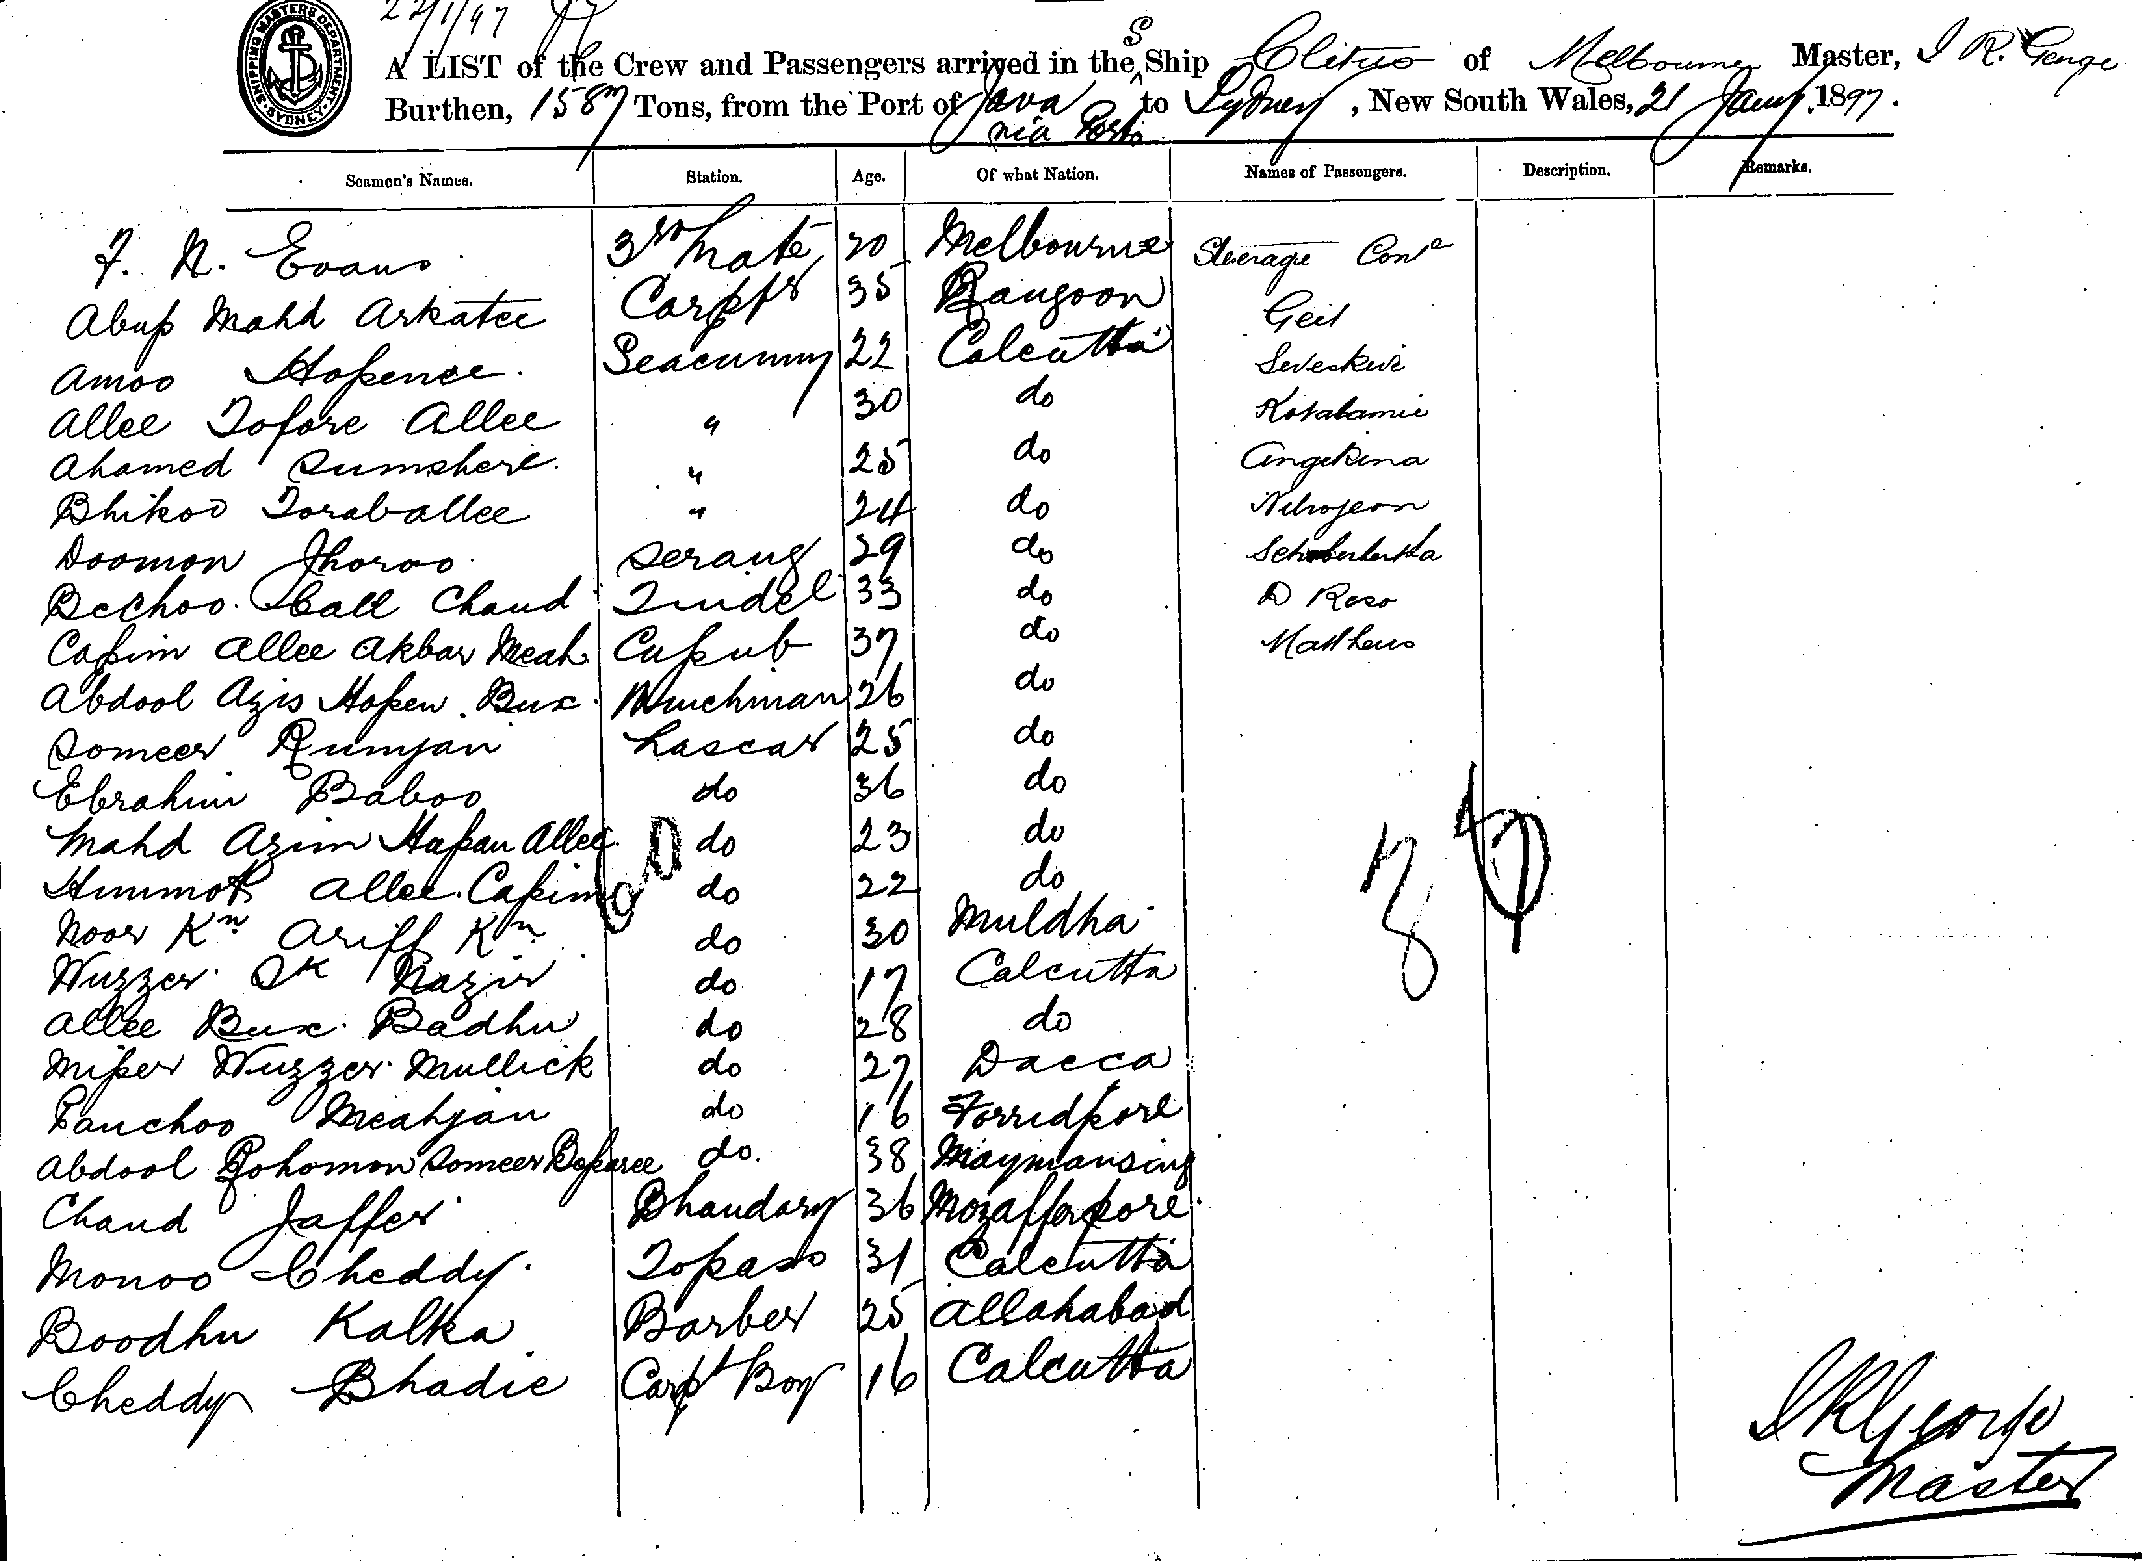 22/1/97
SHIPPING MASTERS DEPARTMENT SYDNEY
A LIST of the Crew and Passengers arrived in the S Ship Clitus of Melbourne Master, J R. George
Burthen, 1587 Tons, from the Port of Java via Ports to Sydney, New South Wales, 21 Jany. 1897.
Seamen's Names. Station. Age. Of what Nation. Names of Passengers. Description. Remarks.
F. N. Evans 3rd Mate 20 Melbourne Steerage Cond
Abup Mahd Arkatee Carptr 35 Rangoon Geil
Amoo Hopenee. Seacunny 22 Calcutta
Allee Tofore Allee " 30 do
Ahamed Sumshere. " 25 do Angekina
Bhikoo Toraballee " 24 do
Doomon Jhoroo Serang 29 do
Bechoo. Lall Chand Tindel 33 do D Roso
Capim Allee Akbar Meah Cupub 37 do Matthews
Abdool Azis Hopen. Bux. Winchman 26 do
Someer Rumjan Lascar 25 do
Ebrahim Baboo do 36 do
Mahd Azim Hapan Allee do 23 do
Himmot Allee. Capim do 22 do
Noor Kn Ariff Kn do 30 Muldha
Wuzzer Sk Nazir do 17 Calcutta
Allee Bux. Badhu do 28 do
Miper Wuzzer Mullick do 27 Dacca
Panchoo Meahjan do 16 Forridpore
Abdool Rohomon Someer Beparee do. 38 Maymansing
Chand Jaffer Bhandary 36 Mozafferpore
Monoo Cheddy. Topass 31 Calcutta
Boodhu Kalka Barber 25 Allahabad
Cheddy Bhadie Carpt Boy 16 Calcutta
J R George
Master